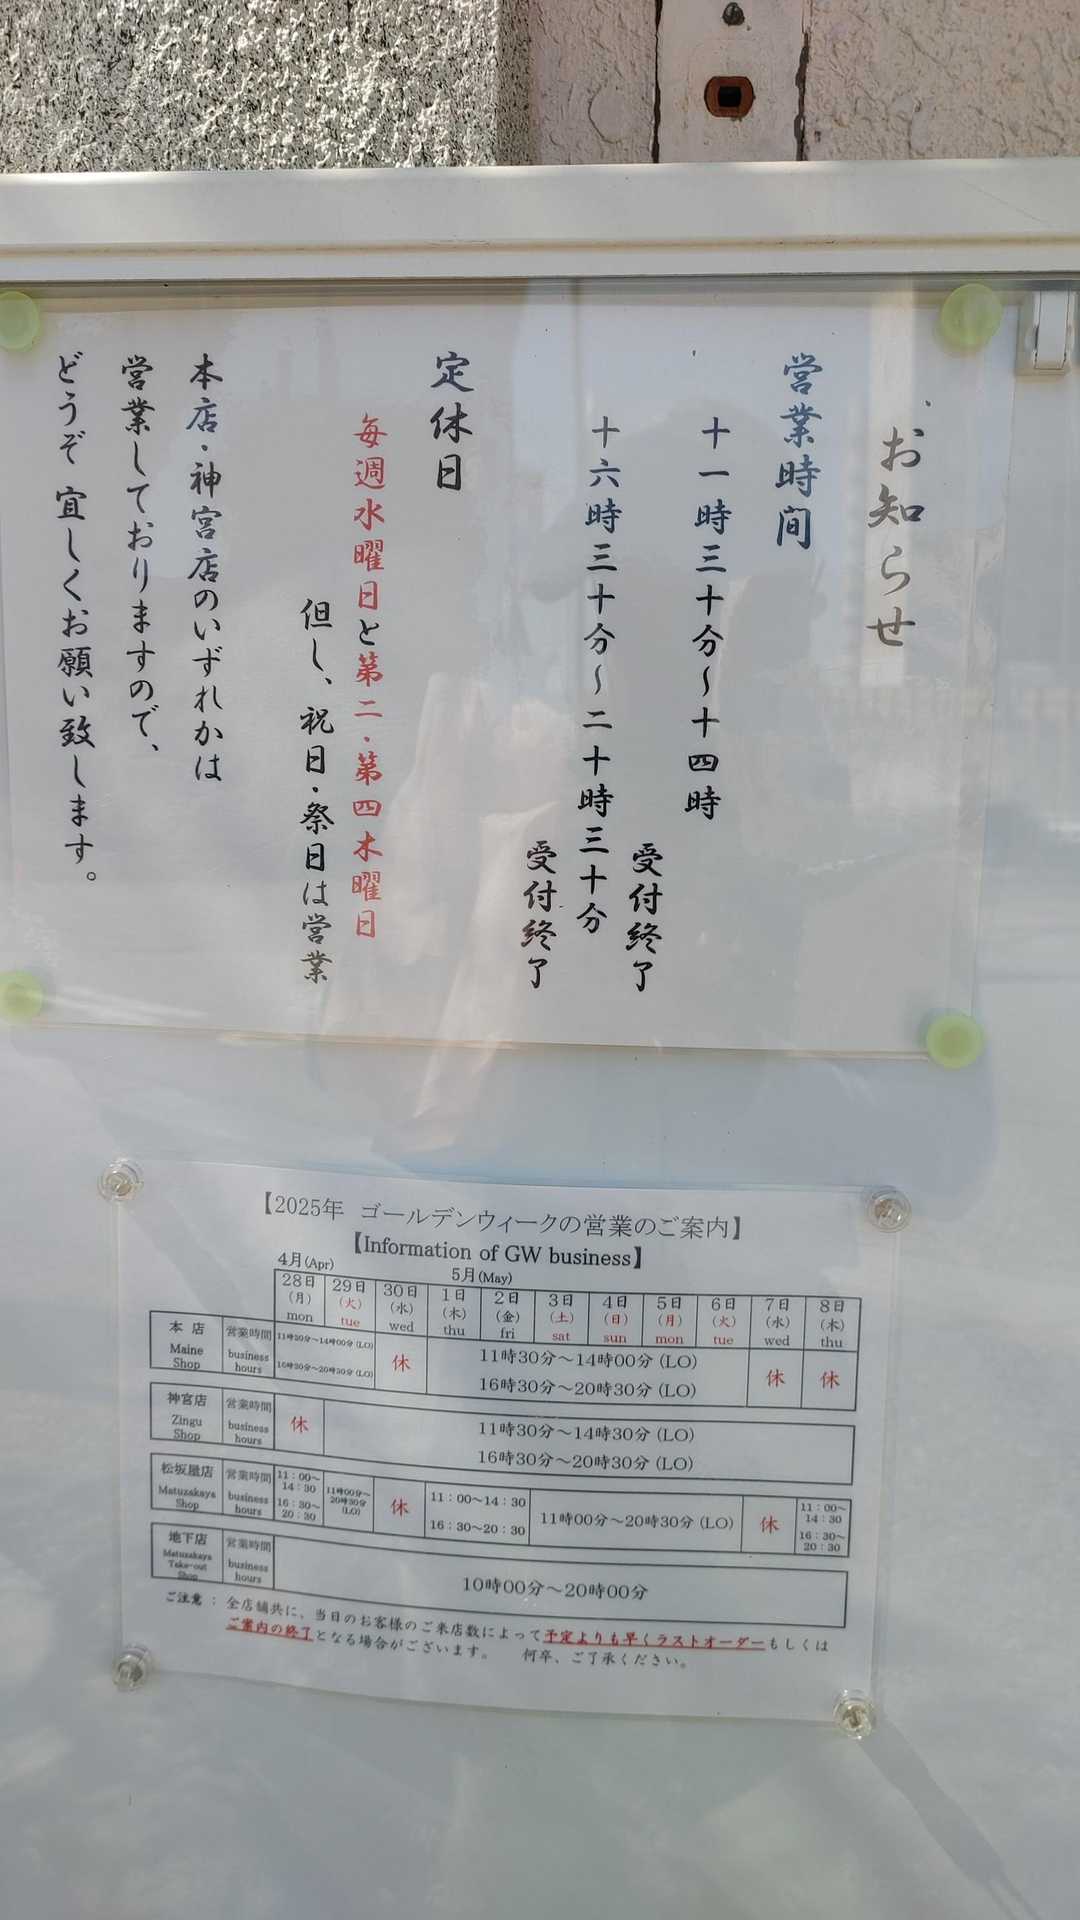 お知らせ
営業時間
十一時三十分〜十四時
受付終了
十六時三十分〜二十時三十分
受付終了
定休日
毎週水曜日と第二・第四木曜日
但し、祝日・祭日は営業
本店・神宮店のいずれかは
営業しておりますので、
どうぞ宜しくお願い致します。
【2025年 ゴールデンウィークの営業のご案内】
【Information of GW business】
4月(Apr) 5月(May)
28日 29日 30日 1日 2日 3日 4日 5日 6日 7日 8日
(月) (火) (水) (木) (金) (土) (日) (月) (火) (水) (木)
mon tue wed thu fri sat sun mon tue wed thu
本店 Maine Shop
営業時間 business hours
11時30分〜14時00分(LO)
16時30分〜20時30分(LO)
休
11時30分〜14時00分(LO)
16時30分〜20時30分(LO)
休 休
神宮店 Zingu Shop
営業時間 business hours
休
11時30分〜14時30分(LO)
16時30分〜20時30分(LO)
松坂屋店 Matuzakaya Shop
営業時間 business hours
11:00〜14:30
16:30〜20:30
11時00分〜20時30分(LO)
休
11:00〜14:30
16:30〜20:30
11時00分〜20時30分(LO)
休
11:00〜14:30
16:30〜20:30
地下店 Matuzakaya Take-out Shop
営業時間 business hours
10時00分〜20時00分
ご注意：全店舗共に、当日のお客様のご来店数によって予定よりも早くラストオーダーもしくは
ご案内の終了となる場合がございます。 何卒、ご了承ください。